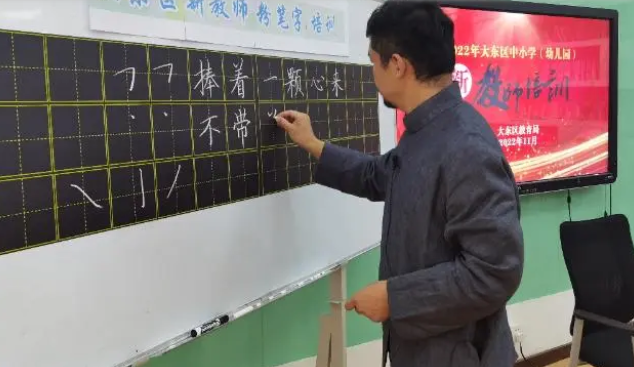 东区新教师粉笔字培训
捧着一颗心来
不带
2022年大东区中小学(幼儿园)
新教师培训
大东区教育局
2022年11月